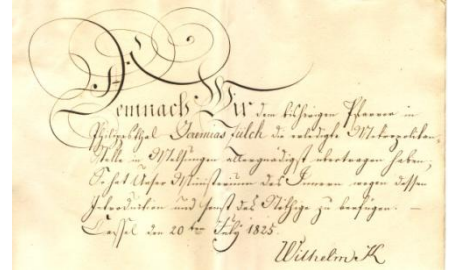 Demnach Wir dem bisherigen Pfarrer in
Philippsthal Jeremias Jülch die erledigte Metropolitan-
Stelle in Melsungen allergnädigst übertragen haben,
So hat Unser Ministerium des Innern wegen dessen
Introduction und sonst das Nöthige zu verfügen. —
Cassel den 20ten July 1825.
Wilhelm K